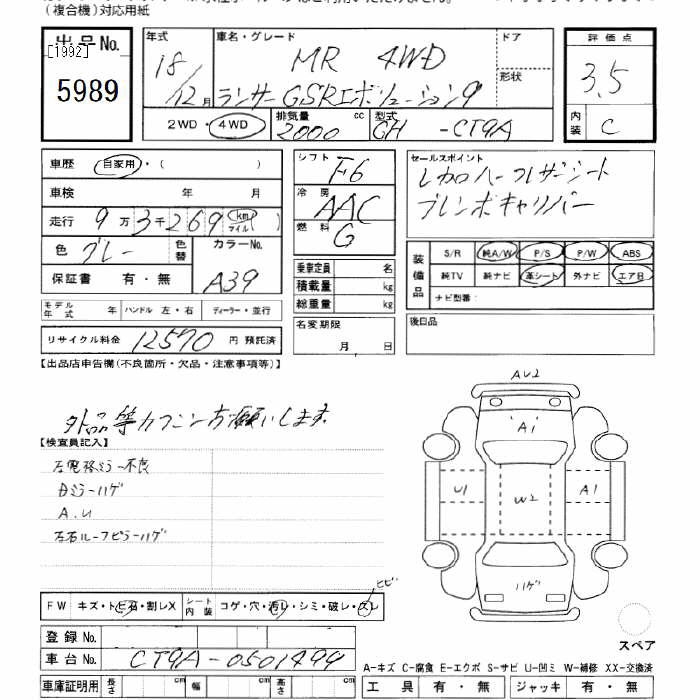 (複合機)対応用紙
出品No.
[1992]
5989
年式 18/12月
車名・グレード MR 4WD
ランサーGSRエボリューション9
ドア
形状
2WD・4WD
排気量 2000 cc
型式 GH -CT9A
評価点 3.5
内装 C
車歴 自家用・( )
車検 年 月
走行 9万3千269 km マイル ( )
色 グレー 色替 カラーNo. A39
保証書 有・無
モデル年式 年 ハンドル 左・右 ディーラー・並行
リサイクル料金 12570 円 預託済
シフト F6
冷房 AAC
燃料 G
乗車定員 名
積載量 kg
総重量 kg
名変期限
月 日
セールスポイント
レカロハーフレザーシート
ブレンボキャリパー
装備品 S/R 純A/W P/S P/W ABS
純TV 純ナビ 革シート 外ナビ エアB
ナビ型番:
後日品
【出品店申告欄(不良箇所・欠品・注意事項等)】
外品等カクニンお願いします.
【検査員記入】
左電格ミラー不良
Bミラーハゲ
A.U
左右ルーフピラーハゲ
AU2
A1
U1
W2
A1
ハゲ
スペア
ヒビ
FW キズ・トビ石・割レX シート内装 コゲ・穴・汚レ・シミ・破レ・スレ
登録No.
車台No. CT9A-0501499
車庫証明用 長さ cm 幅 cm 高さ cm
A-キズ C-腐食 E-エクボ S-サビ U-凹ミ W-補修 XX-交換済
工具 有・無 ジャッキ 有・無